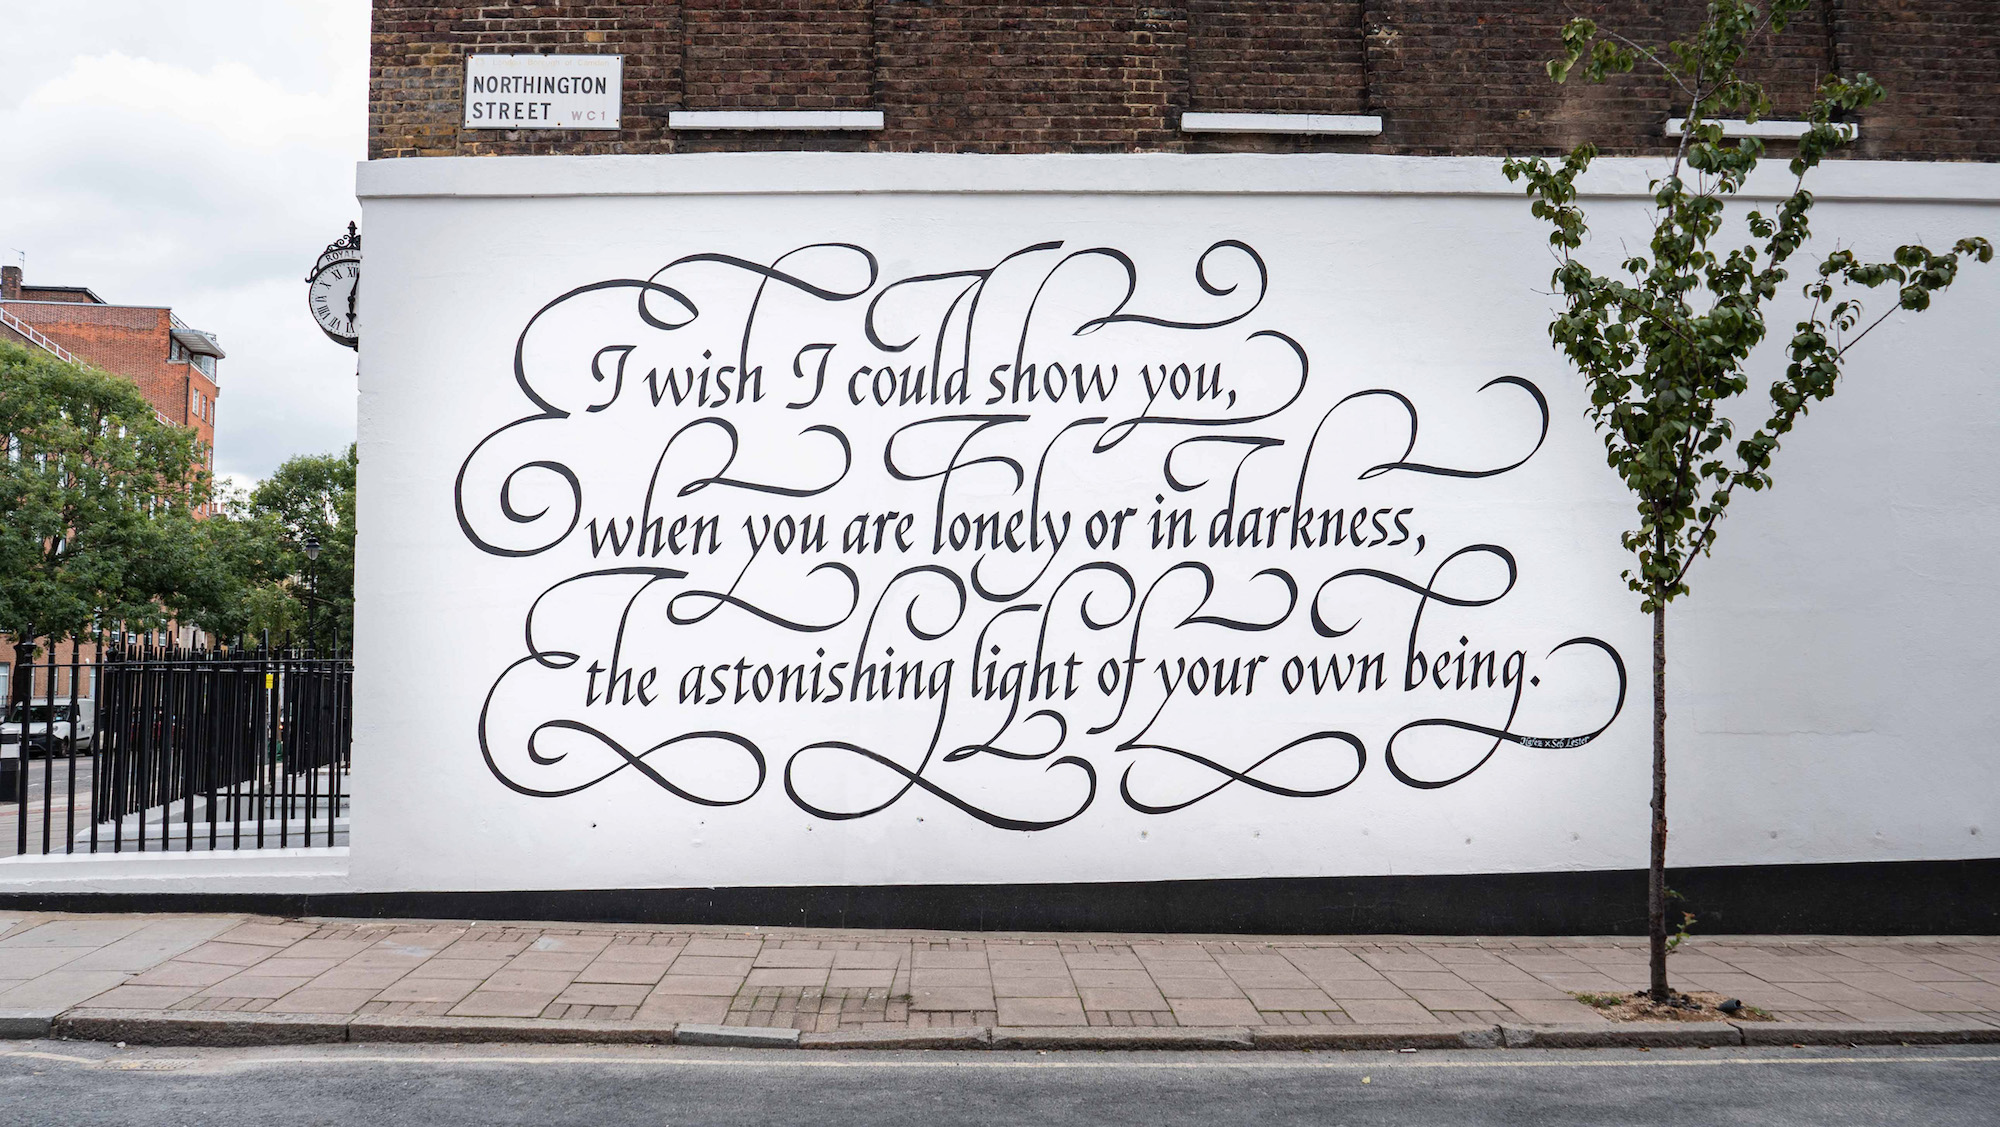 London Borough of Camden
NORTHINGTON
STREET WC1
ROYAL
I wish I could show you,
when you are lonely or in darkness,
the astonishing light of your own being.
Hafez x Seb Lester